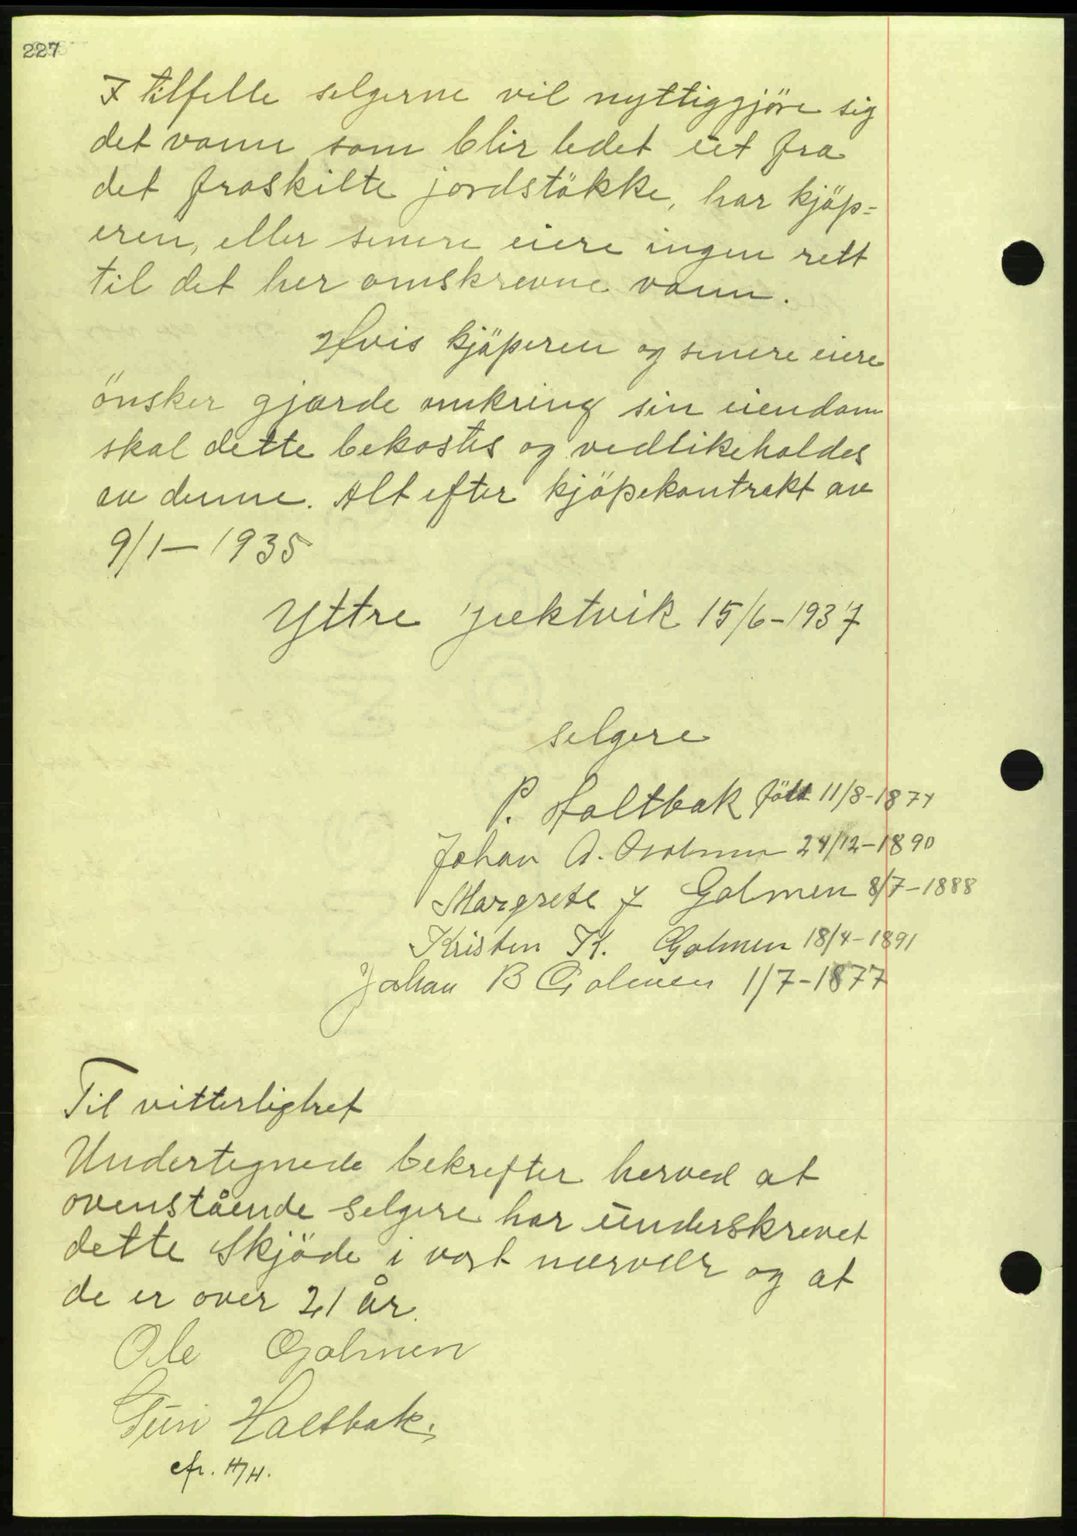 227
I tilfelle selgerne vil nyttiggjöre sig
det vann som blir ledet ut fra
det fraskilte jordstökke, har kjöp=
eren, eller senere eiere ingen rett
til det her omskrevne vann.
Hvis kjöperen og senere eiere
önsker gjærde omkring sin eiendom
skal dette bekostes og vedlikeholdes
av denne. Alt efter kjöpekontrakt av
9/1-1935
Yttre Jektvik 15/6-1937
selgere
P. Holtbak född 11/8-1874
Johan A. 24/12-1890
Margrete J Golmen 8/7-1888
Kristen K. Golmen 18/4-1891
Johan B Golmen 1/7-1877
Til vitterlighet
Undertegnede bekrefter herved at
ovenstående selgere har underskrevet
dette Skjöde i vort nærvær og at
de er over 21 år.
Ole Golmen
Guri Holtbak.
cfr. H/H.